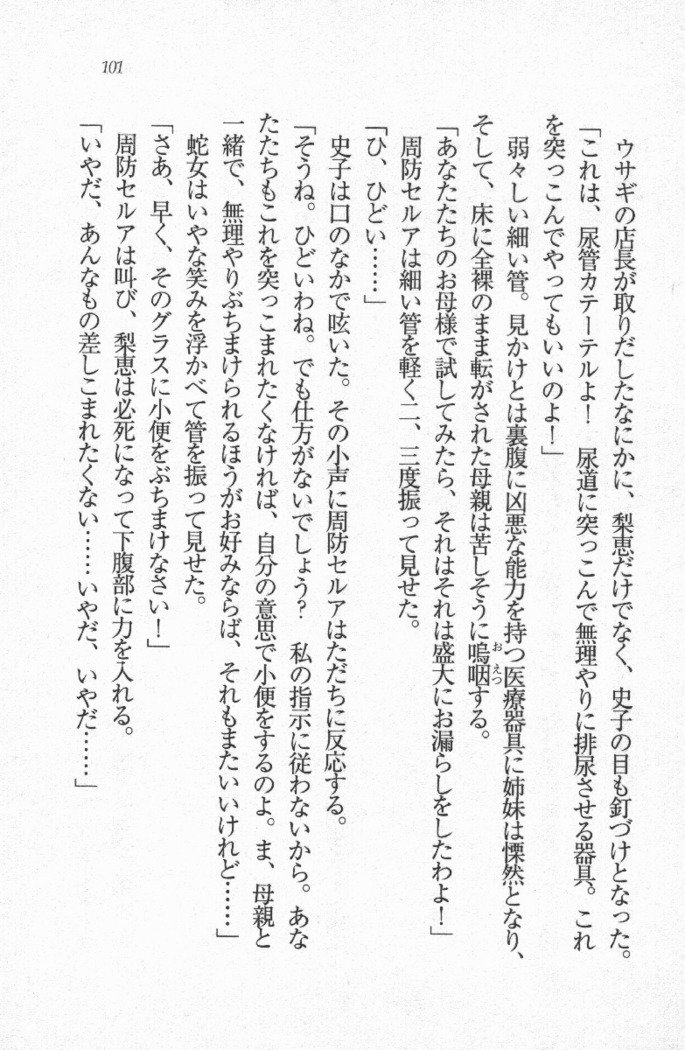 101
ウサギの店長が取りだしたなにかに、梨恵だけでなく、史子の目も釘づけとなった。
「これは、尿管カテーテルよ！　尿道に突っこんで無理やりに排尿させる器具。これ
を突っこんでやってもいいのよ！」
弱々しい細い管。見かけとは裏腹に凶悪な能力を持つ医療器具に姉妹は慄然となり、
そして、床に全裸のまま転がされた母親は苦しそうに嗚咽する。
「あなたたちのお母様で試してみたら、それはそれは盛大にお漏らしをしたわよ！」
周防セルアは細い管を軽く二、三度振って見せた。
「ひ、ひどい……」
史子は口のなかで呟いた。その小声に周防セルアはただちに反応する。
「そうね。ひどいわね。でも仕方がないでしょう？　私の指示に従わないから。あな
たたちもこれを突っこまれたくなければ、自分の意思で小便をするのよ。ま、母親と
一緒で、無理やりぶちまけられるほうがお好みならば、それもまたいいけれど……」
蛇女はいやな笑みを浮かべて管を振って見せた。
「さあ、早く、そのグラスに小便をぶちまけなさい！」
周防セルアは叫び、梨恵は必死になって下腹部に力を入れる。
「いやだ、あんなもの差しこまれたくない……いやだ、いやだ……」